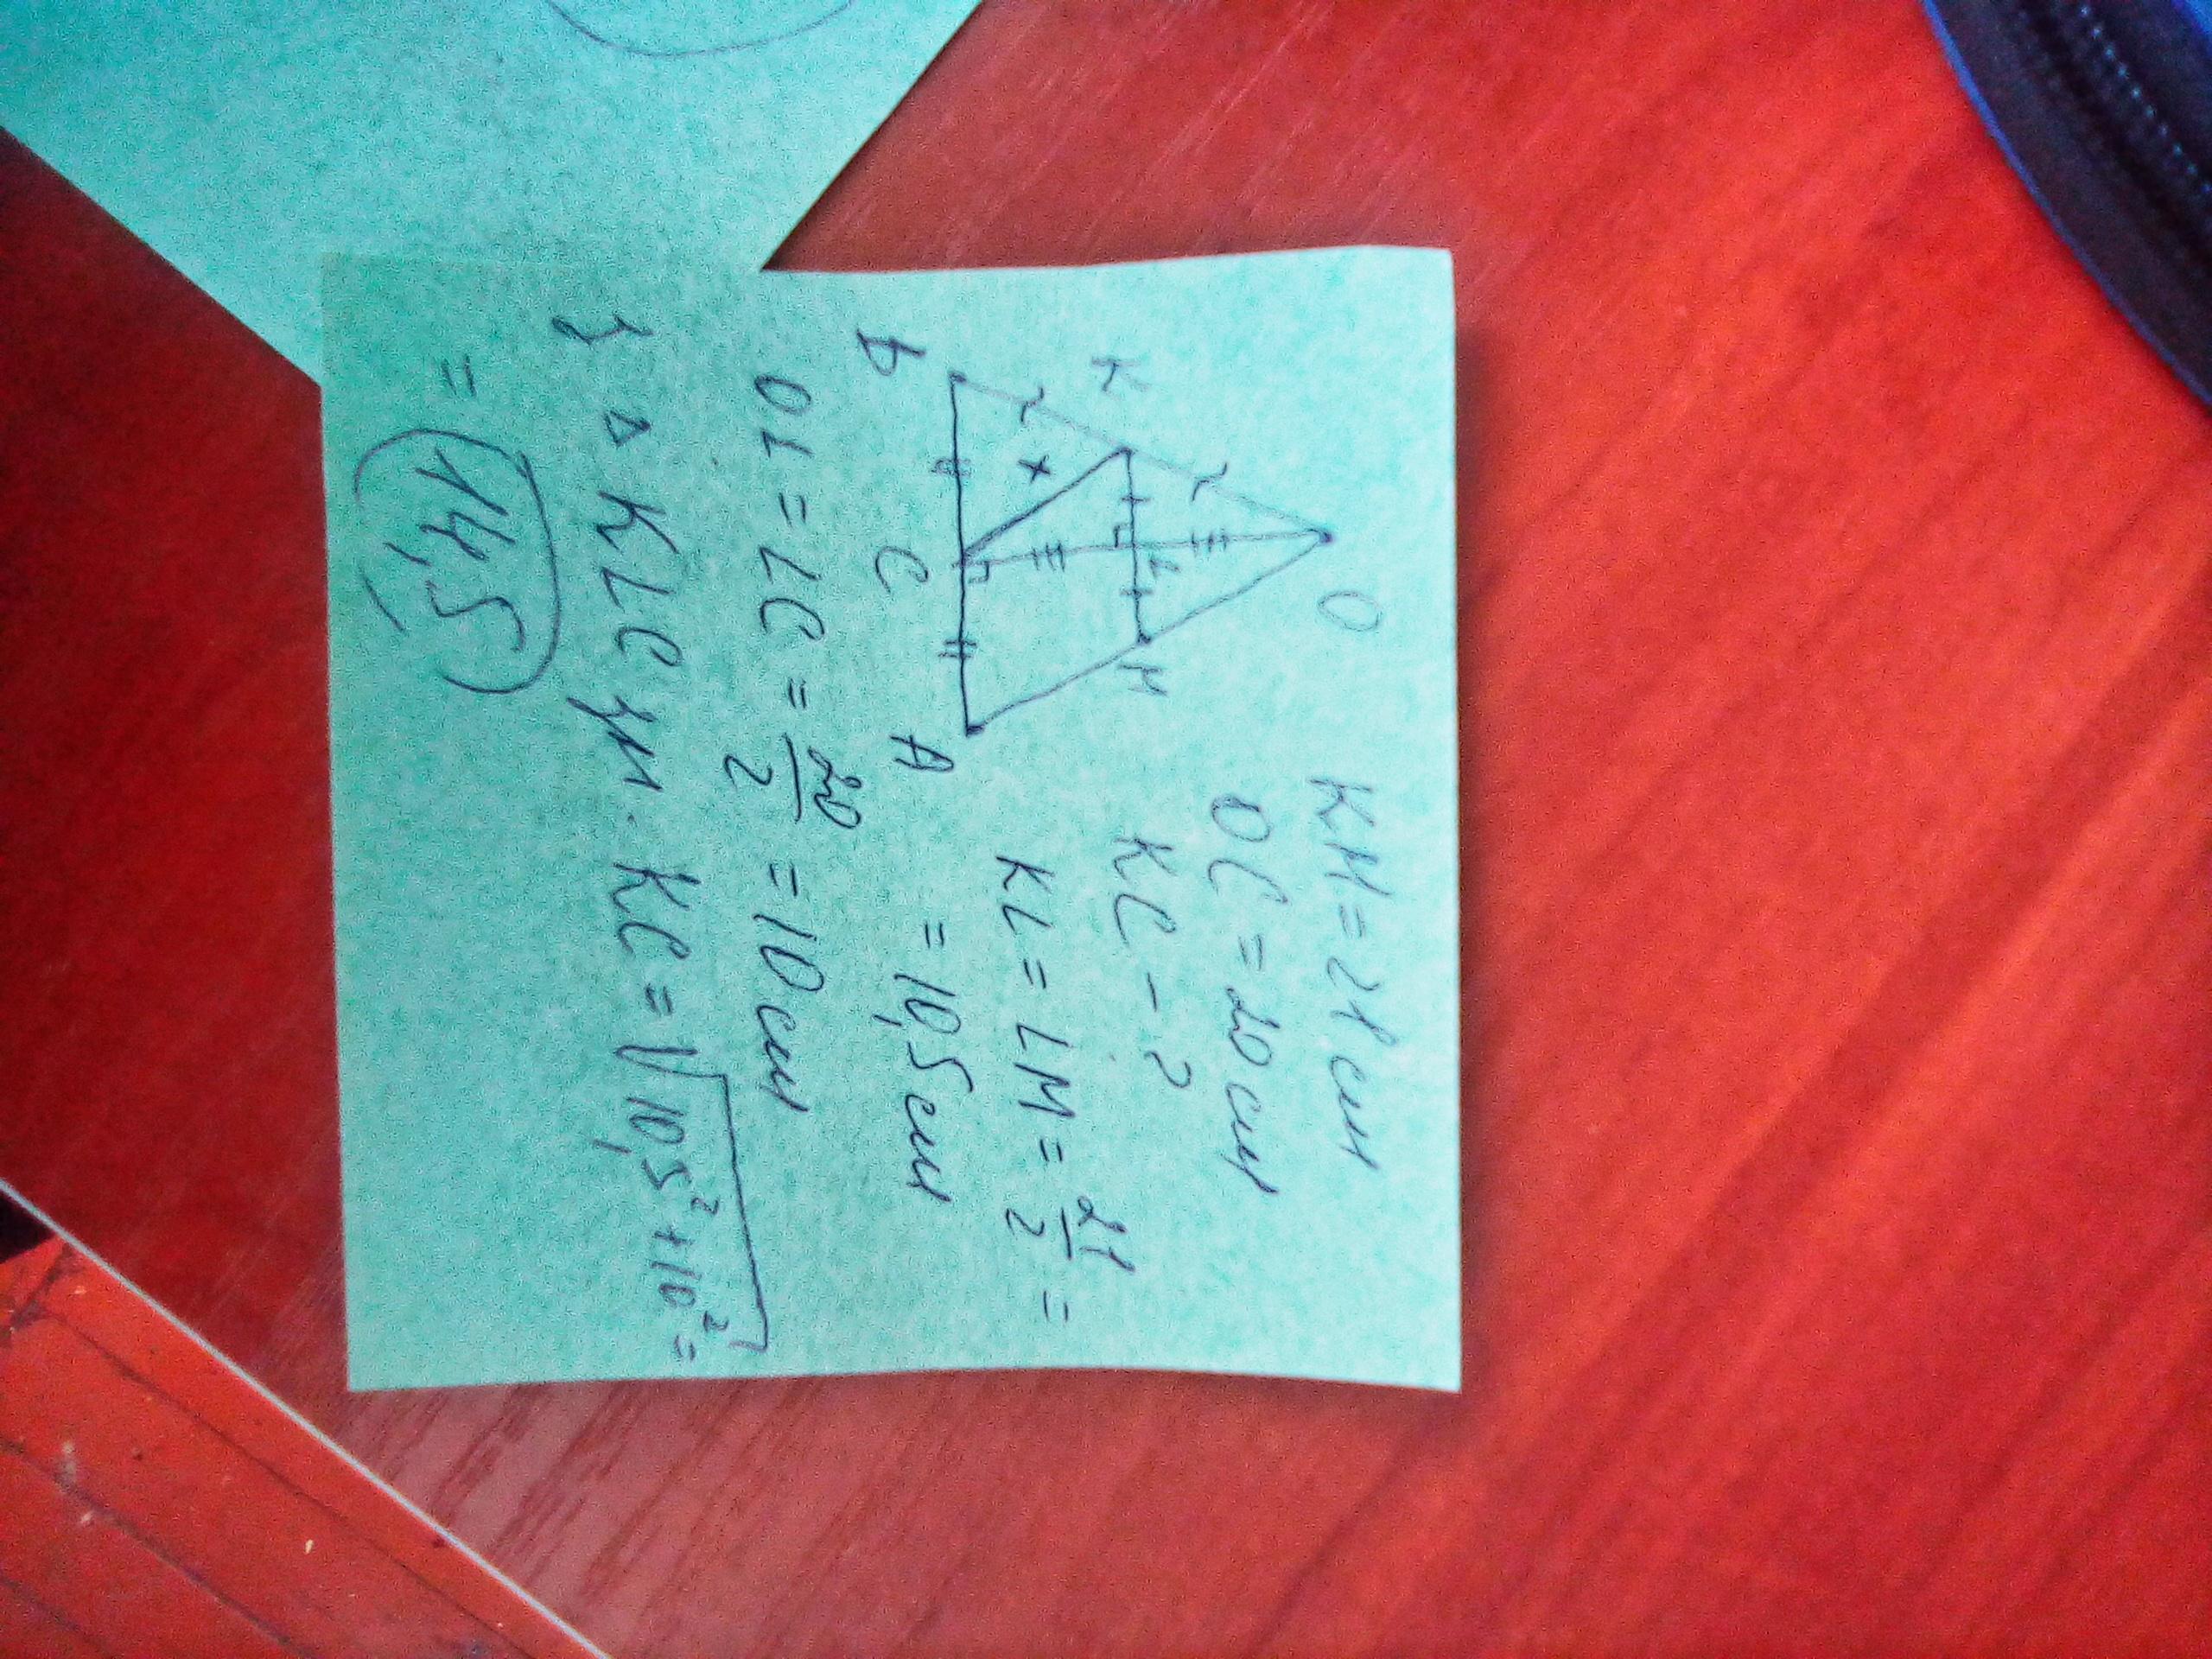 O
K
M
L
x
B
C
A
KM = 21 см
OC = 20 см
KC - ?
KL = LM = 21/2 =
= 10,5 см
OL = LC = 20/2 = 10 см
З △ KLC гм. KC = √10,5² + 10² =
= 14,5